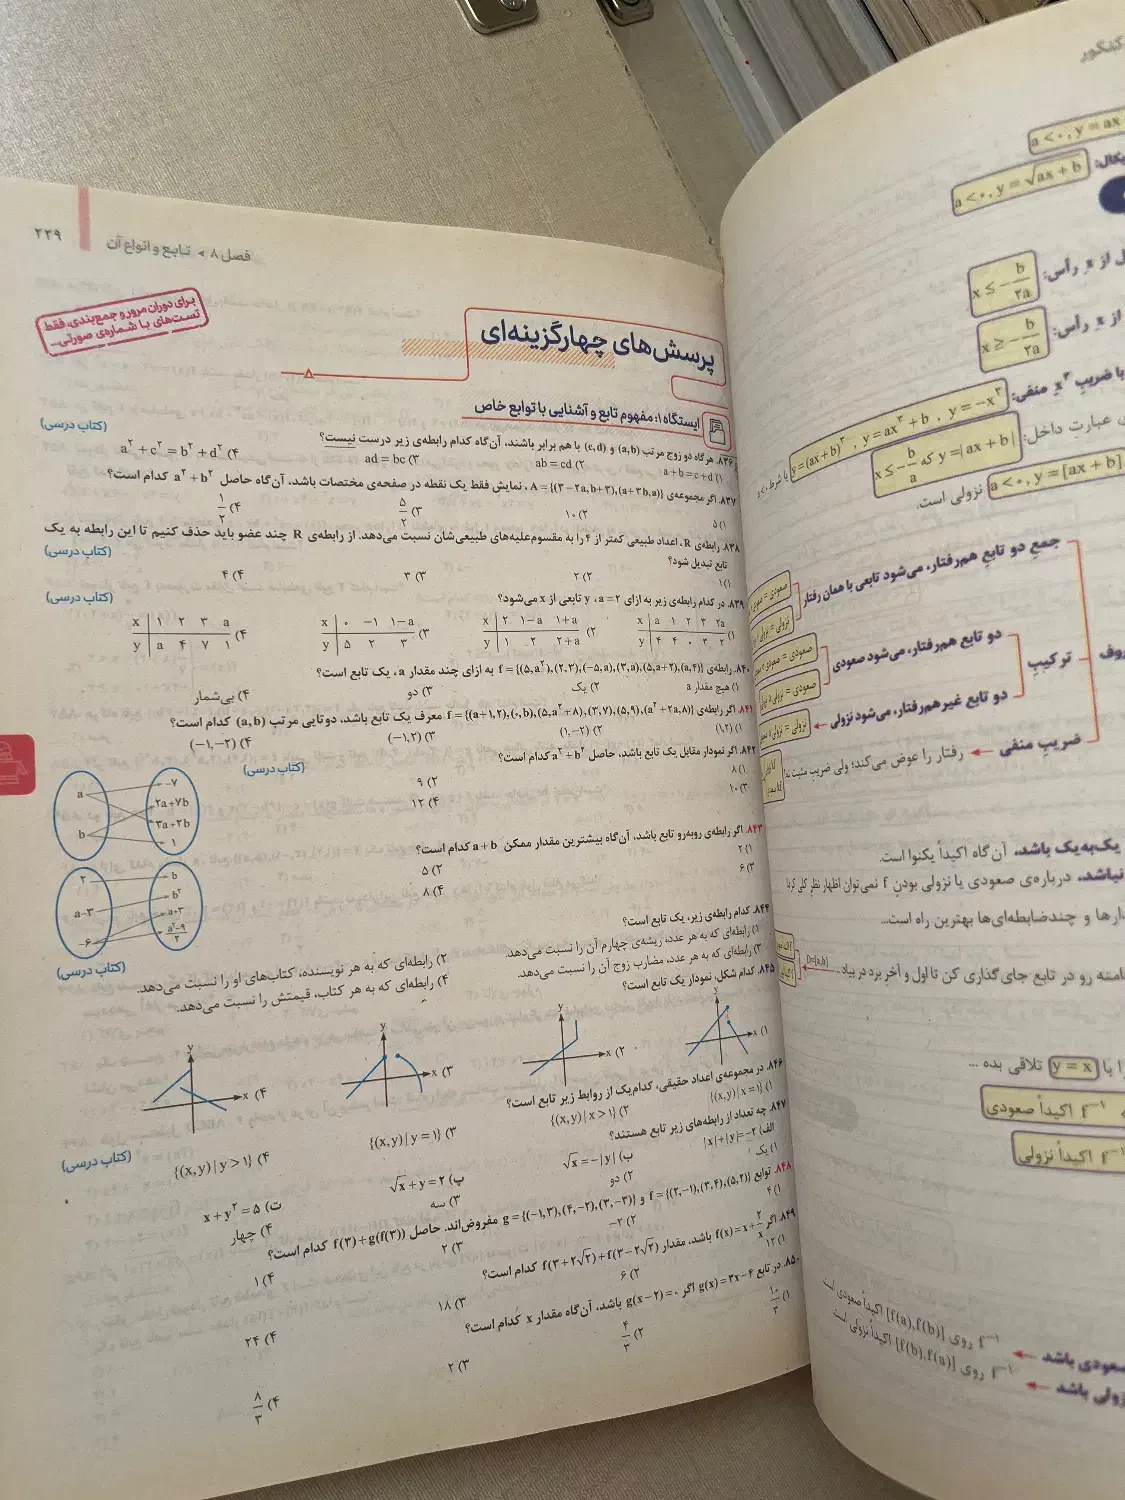 فصل ۸ ◂ تابع و انواع آن
۲۲۹
برای دوران مرور و جمع‌بندی، فقط
تست‌های با شماره‌ی صورتی...
پرسش‌های چهارگزینه‌ای
ایستگاه ۱: مفهوم تابع و آشنایی با توابع خاص
۸۳۶. هرگاه دو زوج مرتب (a,b) و (c,d) با هم برابر باشند، آن‌گاه کدام رابطه‌ی زیر درست نیست؟ (کتاب درسی)
۱) a+b=c+d ۲) ab=cd ۳) ad=bc ۴) a²+c²=b²+d²
۸۳۷. اگر مجموعه‌ی A={(۳-۲a,b+۳),(a+۳b,a)}، نمایش فقط یک نقطه در صفحه‌ی مختصات باشد، آن‌گاه حاصل a²+b² کدام است؟
۱) ۵ ۲) ۱۰ ۳) ۵/۲ ۴) ۱/۲
۸۳۸. رابطه‌ی R، اعداد طبیعی کمتر از ۴ را به مقسوم‌علیه‌های طبیعی‌شان نسبت می‌دهد. از رابطه‌ی R چند عضو باید حذف کنیم تا این رابطه به یک
تابع تبدیل شود؟ (کتاب درسی)
۱) ۱ ۲) ۲ ۳) ۳ ۴) ۴
۸۳۹. در کدام رابطه‌ی زیر به ازای a=۲، y تابعی از x می‌شود؟ (کتاب درسی)
۱) x | a ۱ ۲ ۳ ۲a ۲) x | ۲ ۱-a ۱+a ۳) x | ۰ -۱ ۱-a ۴) x | ۱ ۲ ۳ a
y | ۴ ۴ ۰ ۳ ۲ y | ۱ ۲ ۲+a y | ۵ ۲ ۳ y | a ۴ ۷ ۱
۸۴۰. رابطه‌ی f={(۵,a²),(۲,۳),(-۵,a),(۳,a),(۵,a+۲),(a,۴)} به ازای چند مقدار a، یک تابع است؟
۱) هیچ مقدار a ۲) یک ۳) دو ۴) بی‌شمار
۸۴۱. اگر رابطه‌ی f={(a+۱,۲),(۰,b),(۵,a²+۸),(۳,۷),(۵,۹),(a²+۲a,۸)} معرف یک تابع باشد، دوتایی مرتب (a,b) کدام است؟
۱) (۱,۲) ۲) (۱,-۲) ۳) (-۱,۲) ۴) (-۱,-۲)
۸۴۲. اگر نمودار مقابل یک تابع باشد، حاصل a²+b² کدام است؟ (کتاب درسی)
۱) ۸ ۲) ۹
۳) ۱۰ ۴) ۱۲
a
b
-۷
۲a+۷b
۳a+۲b
۱
۸۴۳. اگر رابطه‌ی روبه‌رو تابع باشد، آن‌گاه بیشترین مقدار ممکن a+b کدام است؟
۱) ۲ ۲) ۵
۳) ۶ ۴) ۸
۲
a-۳
-۶
b
b²
a+۳
a²-۹/۲
۸۴۴. کدام رابطه‌ی زیر، یک تابع است؟ (کتاب درسی)
۱) رابطه‌ای که به هر عدد، ریشه‌ی چهارم آن را نسبت می‌دهد. ۲) رابطه‌ای که به هر نویسنده، کتاب‌های او را نسبت می‌دهد.
۳) رابطه‌ای که به هر عدد، مضارب زوج آن را نسبت می‌دهد. ۴) رابطه‌ای که به هر کتاب، قیمتش را نسبت می‌دهد.
۸۴۵. کدام شکل، نمودار یک تابع است؟
y y y y
۱) x ۲) x ۳) x ۴) x
۸۴۶. در مجموعه‌ی اعداد حقیقی، کدام‌یک از روابط زیر تابع است؟ (کتاب درسی)
۱) {(x,y)|x=۱} ۲) {(x,y)|x>۱} ۳) {(x,y)|y=۱} ۴) {(x,y)|y>۱}
۸۴۷. چه تعداد از رابطه‌های زیر تابع هستند؟
الف) |x|+|y|=-۲ ب) √x=-|y| پ) √x+y=۲ ت) x+y²=۵
۱) یک ۲) دو ۳) سه ۴) چهار
۸۴۸. توابع f={(۲,-۱),(۳,۴),(۵,۲)} و g={(-۱,۳),(۴,-۲),(۳,-۳)} مفروض‌اند. حاصل f(۳)+g(f(۳)) کدام است؟
۱) ۴ ۲) -۲ ۳) ۲ ۴) ۱
۸۴۹. اگر f(x)=x+۲/x باشد، مقدار f(۳+۲√۲)+f(۳-۲√۲) کدام است؟
۱) ۱۲ ۲) ۶ ۳) ۱۸ ۴) ۲۴
۸۵۰. در تابع g(x)=۳x-۴ اگر g(x-۲)=۰ باشد، آن‌گاه مقدار x کدام است؟
۱) ۱۰/۳ ۲) ۴/۳ ۳) ۲ ۴) ۸/۳
a<۰, y=ax
a<۰, y=√ax+b
x≤-b/۲a
رأس:
x≥-b/۲a
رأس:
y=(ax+b)³, y=ax³+b, y=-x³
با ضریب x³ منفی:
عبارت داخل: y=|ax+b| که x≤-b/a
a<۰, y=[ax+b] نزولی است.
جمع دو تابع هم‌رفتار، می‌شود تابعی با همان رفتار
ترکیب
دو تابع هم‌رفتار، می‌شود صعودی
دو تابع غیرهم‌رفتار، می‌شود نزولی
ضریب منفی
رفتار را عوض می‌کند؛ ولی ضریب مثبت نه!
یک‌به‌یک باشد، آن‌گاه اکیداً یکنوا است.
نباشد، درباره‌ی صعودی یا نزولی بودن f نمی‌توان اظهار نظر کلی کرد!
و چندضابطه‌ای‌ها بهترین راه است...
رو در تابع جای‌گذاری کن تا اول و آخر برد در بیاد
D=[a,b]
را با y=x تلاقی بده ...
f⁻¹ اکیداً صعودی
f⁻¹ اکیداً نزولی
صعودی باشد f⁻¹ روی [f(a),f(b)] اکیداً صعودی است
نزولی باشد f⁻¹ روی [f(b),f(a)] اکیداً نزولی است